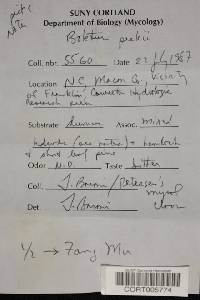 pict &
note
SUNY CORTLAND
Department of Biology (Mycology)
Boletus peckii
Coll. nbr. 5560 Date 22 July 1987
Location N.C. Macon Co., vicinity
of Franklin, Coweeta Hydrologic
Research
Substrate humus Assoc. mixed
hemlock
& short leaf pine
Odor N.D. Taste bitter
Coll. T. Baroni / Petersen's
mycol
Det. T. Baroni
1/2 → Fang Mu
BARCODE
CORT005774